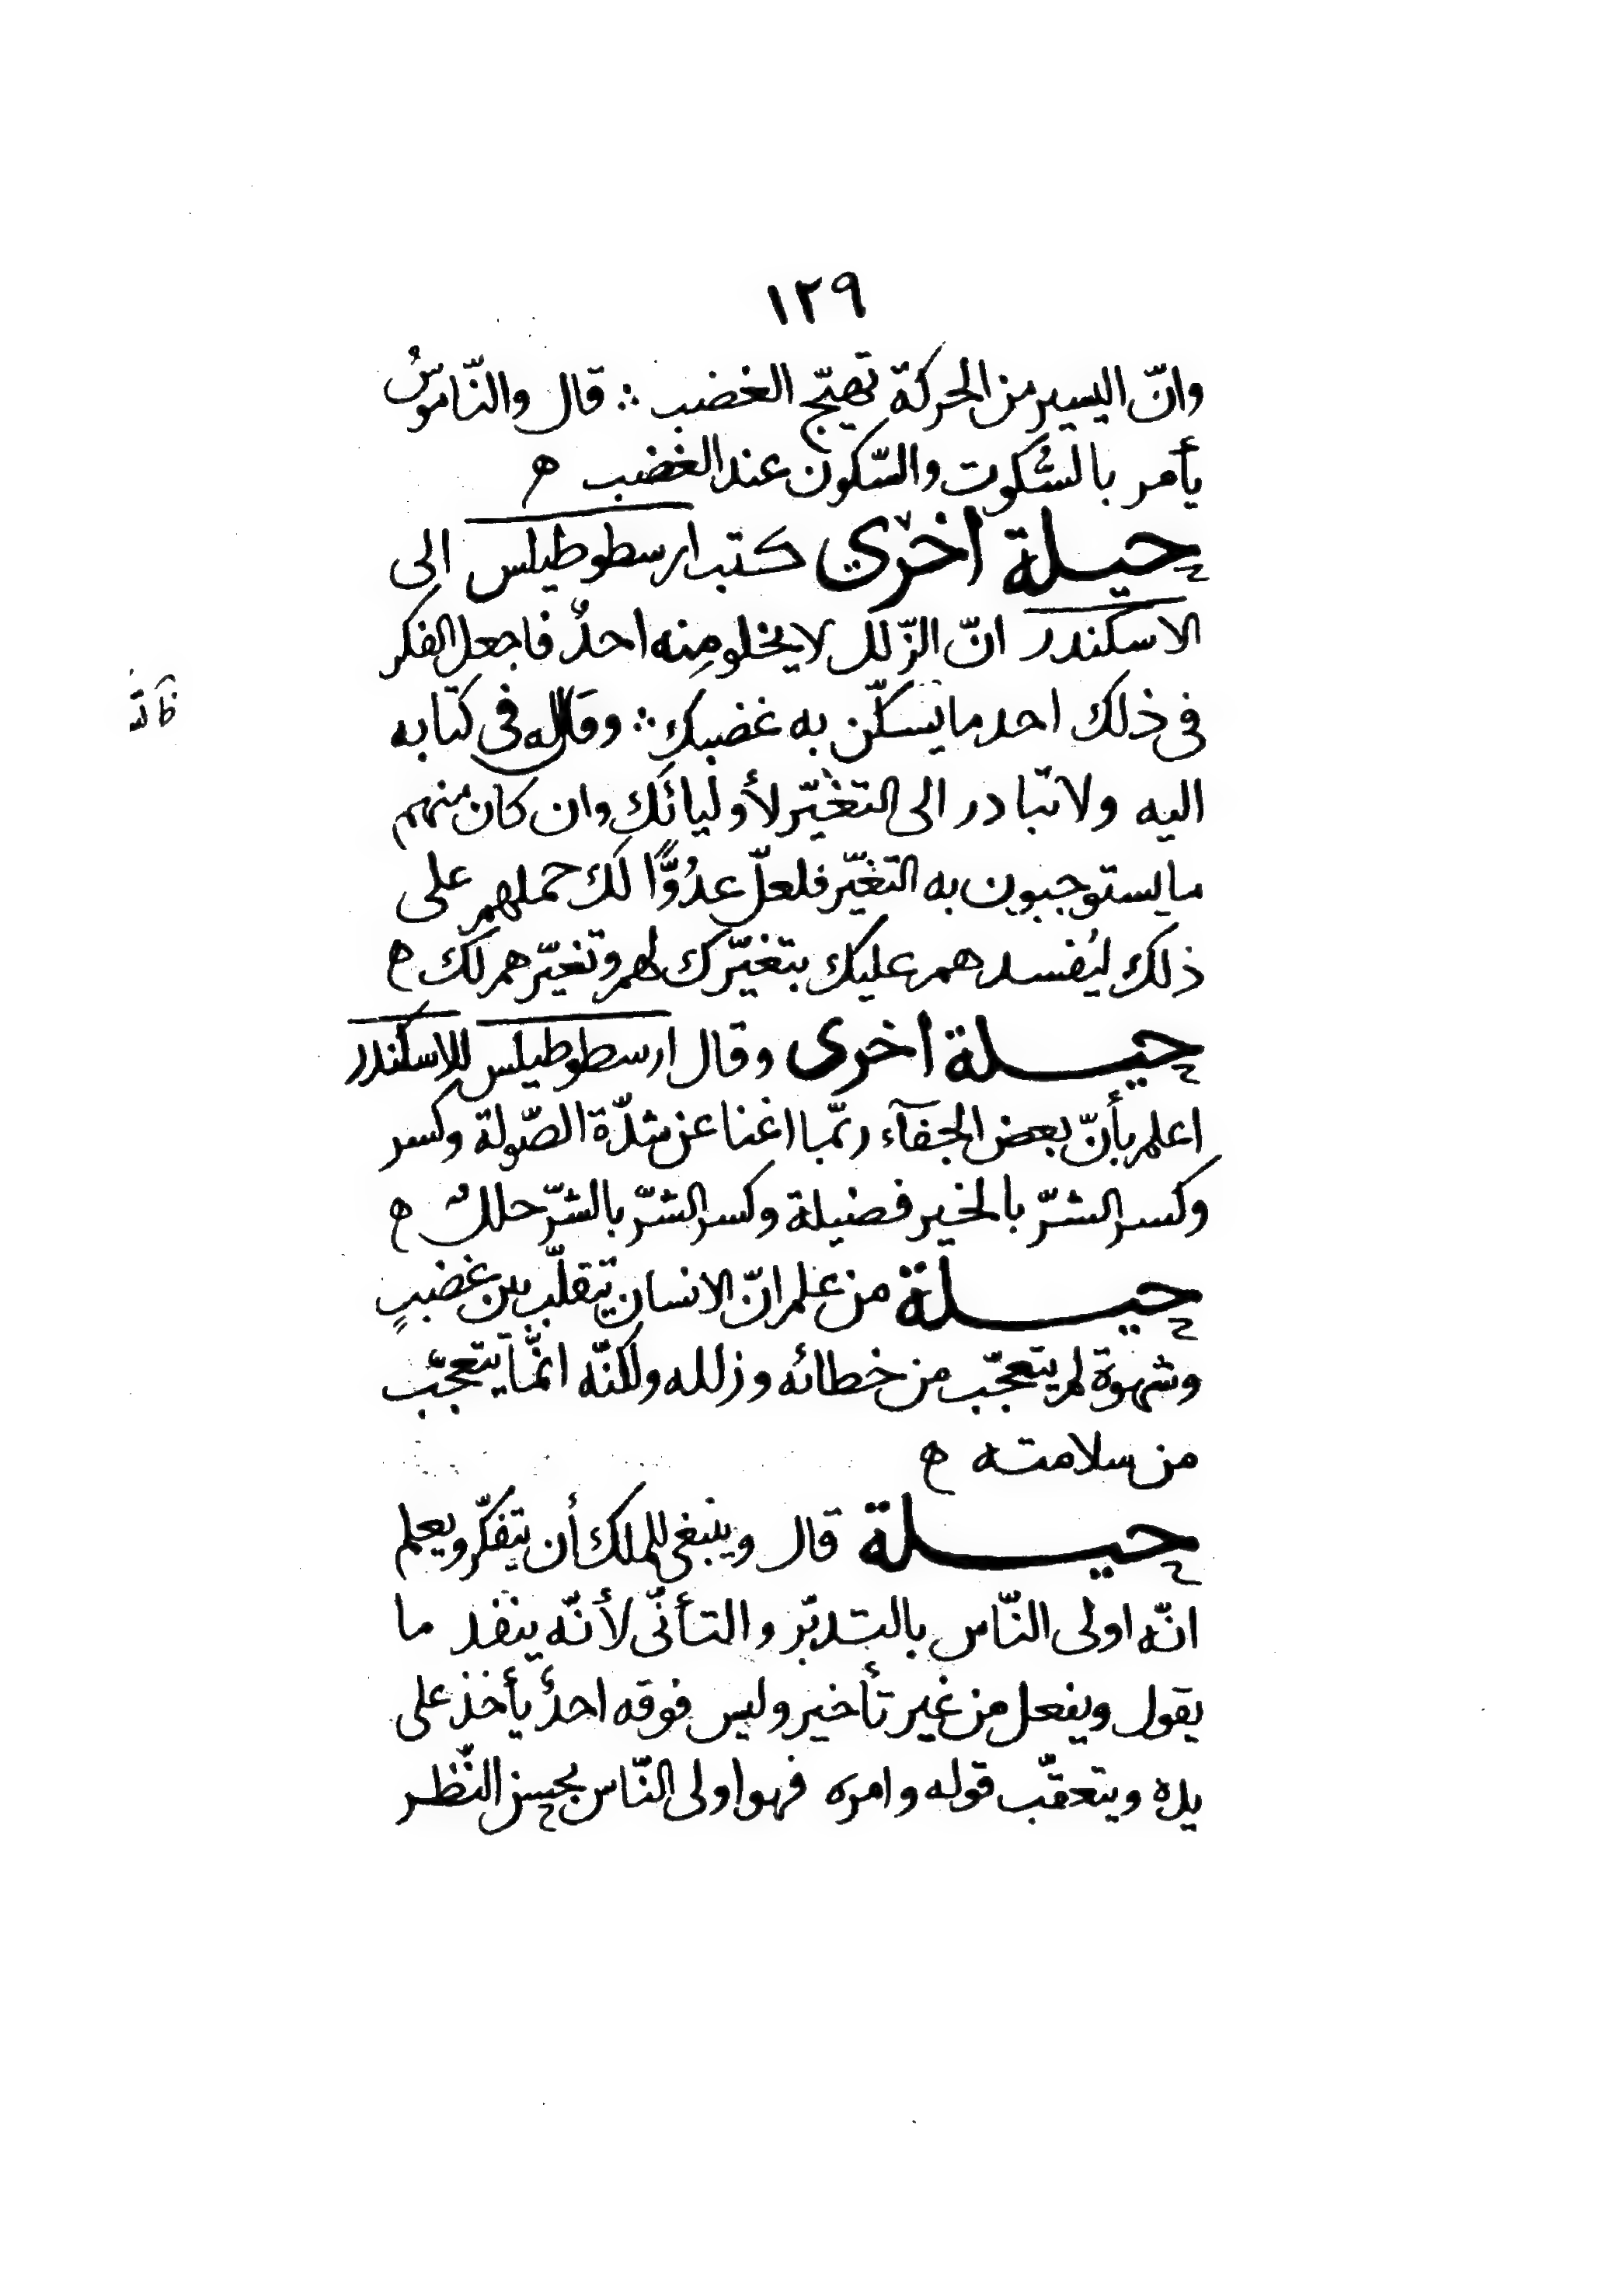 ١٢٩
وانّ اليسير من الحركة تهيّج الغضب ∴ قال والنّاموسُ
يأمر بالسُّكوت والسّكون عند الغضب ه
حيلة اخرى كتب ارسطوطيلس الى
الاسكندر انّ الزّلل لا يخلو مِنه احدٌ فاجعل الفكر
فى ذلك احد ما يسكّن به غضبك ∴ وقال له فى كتابه
اليه ولا تبادر الى التغيّر لأوليائك وان كان منهم
ما يستوجبون به التغيّر فلعلّ عدُوًّا لك حملهم على
ذلك ليُفسدهم عليك بتغيّرك لهم وتغيّرهم لك ه
حيلة اخرى وقال ارسطوطيلس للاسكندر
اعلم بأنّ بعض الجفآء ربّما اغنا عن شدّة الصّولة وكسر
وكسر الشرّ بالخير فضيلة وكسر الشرّ بالشرّ حلك ه
حيلة من علم انّ الانسان يتقلّب بين غضبٍ
وشهوة لم يتعجّب من خطائه وزلله ولكنّه انّما يتعجّب
من سلامته ه
حيلة قال وينبغى للملك أن يتفكّر ويعلم
انّه اولى النّاس بالتدبّر والتأنّى لأنّه ينفذ ما
يقول ويفعل من غير تأخير وليس فوقه احدٌ يأخذ على
يده ويتعقّب قوله وامره فهو اولى النّاس بحسن النّظر